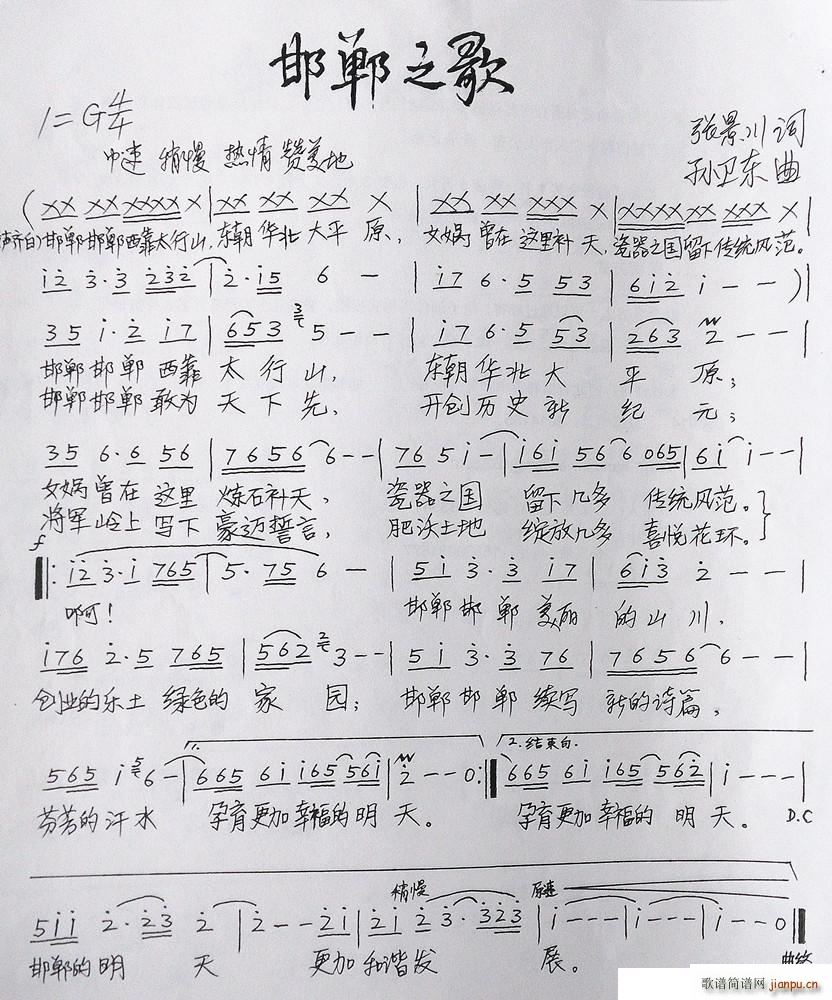 邯郸之歌
1=G 4/4
张景川 词
中速 稍慢 热情 赞美地
孙卫东 曲
(XX XX XXXX X | XX XX XX X | XX XX XXX X | XXXX XX XXX X |
声齐白)邯郸邯郸西靠太行山,东朝华北大平原,女娲曾在这里补天,瓷器之国留下传统风范。
i2 3·3 232 | 2·i5 6 - | i7 6·5 5 53 | 6i2 i - - )|
35 i·2 i7 | 653 5 - - | i7 6·5 53 | 263 2 - - |
邯郸邯郸西靠太行山,东朝华北大平原;
邯郸邯郸敢为天下先,开创历史新纪元;
35 6·6 56 | 7656 6 - - | 76 5 i - | i6i 56 6 065 | 6i i - - |
女娲曾在这里炼石补天,瓷器之国留下几多传统风范。
将军岭上写下豪迈誓言,肥沃土地绽放几多喜悦花环。
f
‖: i2 3·i 765 | 5·75 6 - | 5i 3·3 i7 | 6i3 2 - - |
啊! 邯郸邯郸美丽的山川,
i76 2·5 765 | 562 3 - - | 5i 3·3 76 | 7656 6 - - |
创业的乐土绿色的家园;邯郸邯郸续写新的诗篇,
1. 2.结束句.
565 i 6 - | 665 6i i65 56i | 2 - - 0 :‖ 665 6i i65 562 | i - - - |
芬芳的汗水孕育更加幸福的明天。孕育更加幸福的明天。 D.C
稍慢 原速
5ii 2·23 2 | 2 - - 2i | 2i 2 3·323 | i - - - | i - - - | i - - 0 ‖
邯郸的明天更加和谐发展。 曲终
歌谱简谱网 jianpu.cn